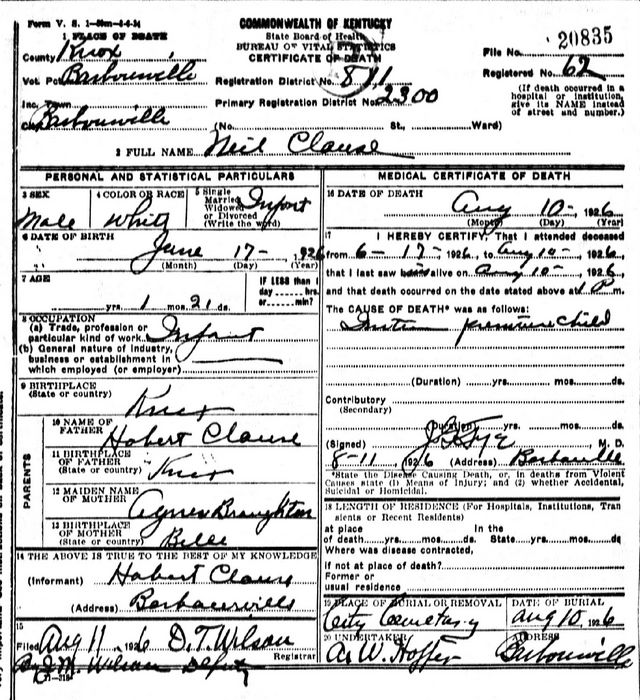 COMMONWEALTH OF KENTUCKY
State Board of Health
BUREAU OF VITAL STATISTICS
CERTIFICATE OF DEATH
1 PLACE OF DEATH
County Knox
Vot. Pct. Barbourville
Inc. Town
City Barbourville
Registration District No. 811
Primary Registration District No. 2300
(No. St., Ward)
File No. 20835
Registered No. 62
(If death occurred in a
hospital or institution,
give its NAME instead
of street and number.)
2 FULL NAME Neil Clause
PERSONAL AND STATISTICAL PARTICULARS
3 SEX
Male
4 COLOR OR RACE
White
5 Single
Married
Widowed
or Divorced
(Write the word)
Infant
6 DATE OF BIRTH
June 17- , 1926
(Month) (Day) (Year)
7 AGE
yrs. 1 mos. 21 ds.
IF LESS than 1
day hrs.
or min?
8 OCCUPATION
(a) Trade, profession or
particular kind of work Infant
(b) General nature of industry,
business or establishment in
which employed (or employer)
9 BIRTHPLACE
(State or country)
Knox
PARENTS
10 NAME OF
FATHER
Hobert Clause
11 BIRTHPLACE
OF FATHER
(State or country)
Knox
12 MAIDEN NAME
OF MOTHER
Agnes Broughton
13 BIRTHPLACE
OF MOTHER
(State or country)
Bell
14 THE ABOVE IS TRUE TO THE BEST OF MY KNOWLEDGE
(Informant) Hobert Clause
(Address) Barbourville
15
Filed Aug 11, 1926 D.T. Wilson
Registrar
By J.M. Wilson Deputy
MEDICAL CERTIFICATE OF DEATH
16 DATE OF DEATH
Aug 10-, 1926
(Month) (Day) (Year)
17 I HEREBY CERTIFY, That I attended deceased
from 6-17-, 1926, to Aug 10-, 1926,
that I last saw alive on Aug 10-, 1926,
and that death occurred on the date stated above at 1 P m.
The CAUSE OF DEATH* was as follows:
premature child
(Duration) yrs. mos. ds.
Contributory
(Secondary)
(Duration) yrs. mos. ds.
(Signed) M. D.
8-11, 1926 (Address) Barbourville
*State the Disease Causing Death, or, in deaths from Violent
Causes state (1) Means of Injury; and (2) whether Accidental,
Suicidal or Homicidal.
18 LENGTH OF RESIDENCE (For Hospitals, Institutions, Tran
sients or Recent Residents)
at place In the
of death yrs. mos. ds. State yrs. mos. ds.
Where was disease contracted,
if not at place of death?
Former or
usual residence
19 PLACE OF BURIAL OR REMOVAL
City Cemetery
DATE OF BURIAL
Aug 10, 1926
20 UNDERTAKER
W. Hopper
ADDRESS
Barbourville